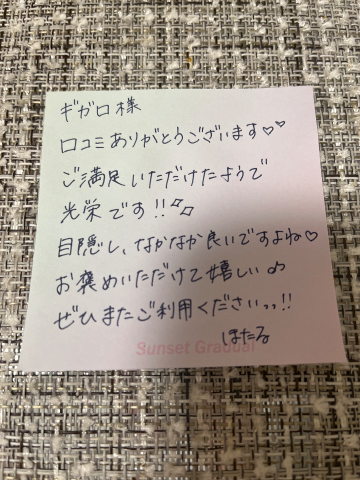 ギガロ様
口コミありがとうございます♡♡
ご満足いただけたようで
光栄です!!
目隠し、なかなか良いですよね♡
お褒めいただけて嬉しい♪
ぜひまたご利用くださいっ!!
ほたる
Sunset Gradual